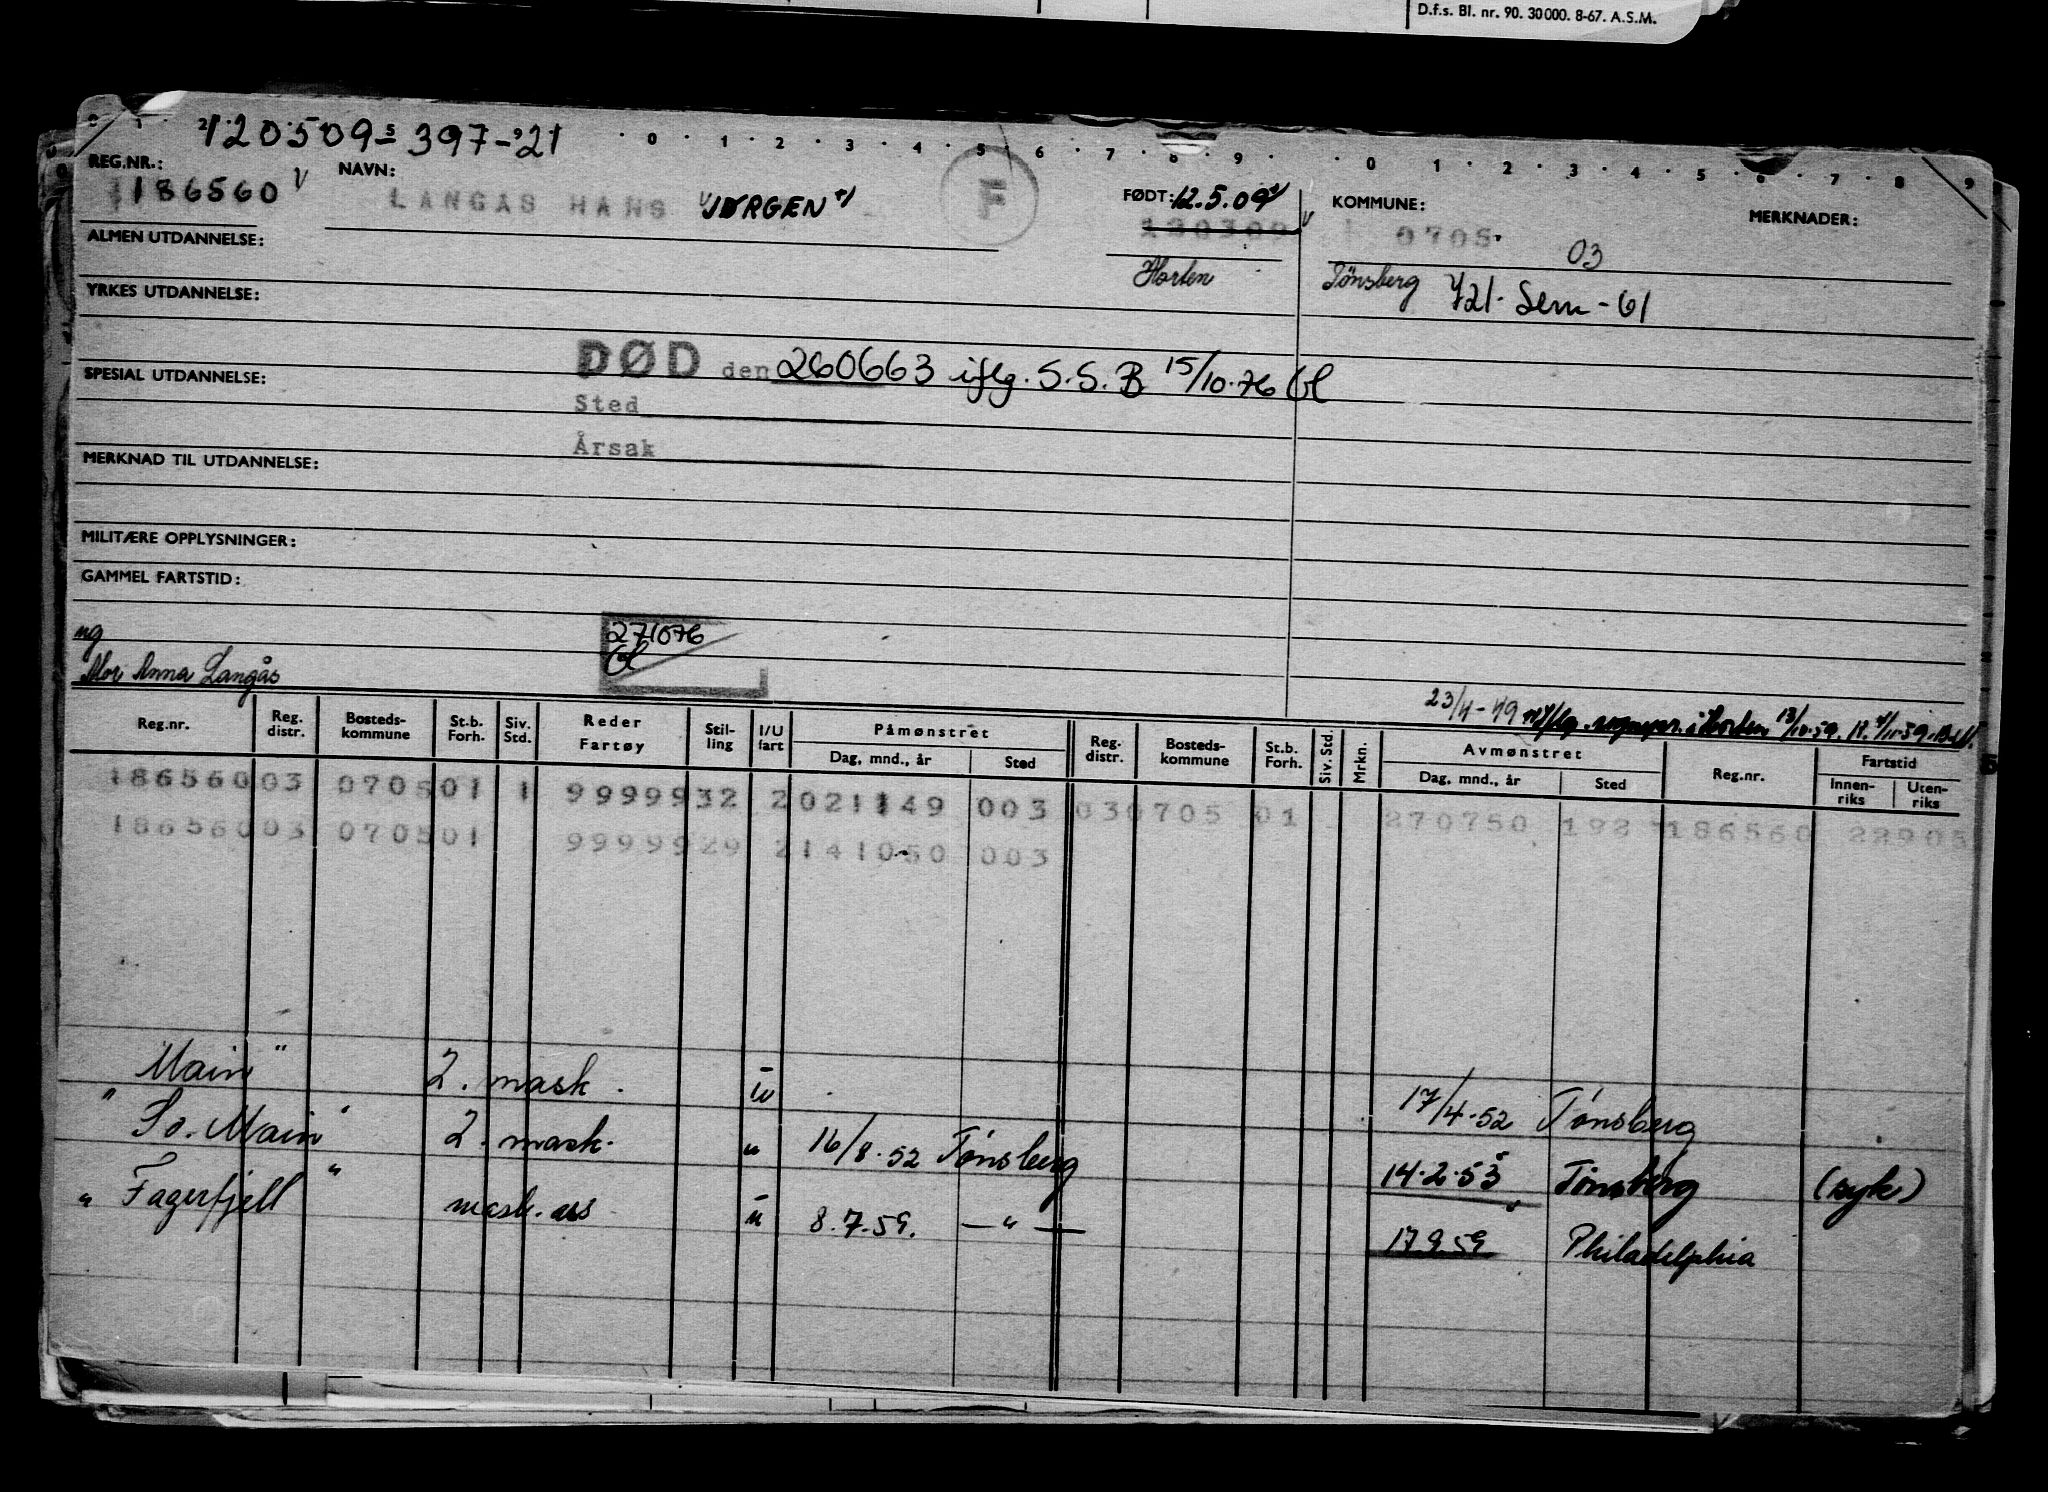 D.f.s. Bl. nr. 90. 30000. 8-67. A.S.M.
120509-397-21
0 1 2 3 4 5 6 7 8 9 0 1 2 3 4 5 6 7 8 9
REG.NR.: NAVN: FØDT: 12.5.09 KOMMUNE: MERKNADER:
186560 LANGÅS HANS JØRGEN F 0705 03
Horten Tønsberg 721. Sem - 61
ALMEN UTDANNELSE:
YRKES UTDANNELSE:
DØD den 260663 iflg. S.S.B 15/10-76
SPESIAL UTDANNELSE:
Sted
Årsak
MERKNAD TIL UTDANNELSE:
MILITÆRE OPPLYSNINGER:
GAMMEL FARTSTID:
ug 271076
Mor Anna Langås
23/4-49 13/10-59
Reg.nr. Reg. distr. Bosteds- kommune St.b. Forh. Siv. Std. Reder Fartøy Stil- ling I/U fart Påmønstret Reg. distr. Bosteds- kommune St.b. Forh. Siv. Std. Mrkn. Avmønstret Reg.nr. Fartstid
Dag, mnd., år Sted Dag, mnd., år Sted Innen- riks Uten- riks
186560 03 0705 01 1 99999 32 2 021149 003 03 0705 01 270750 192 186560
186560 03 0705 01 99999 29 2 141050 003
Main" 2. mask. 17/4-52 Tønsberg
" So. Main" 2. mask. " 16/8-52 Tønsberg 14.2.53 Tønsberg (syk)
" Fagerfjell" mask. ass u 8.7.59. —"— 17.9.59 Philadelphia